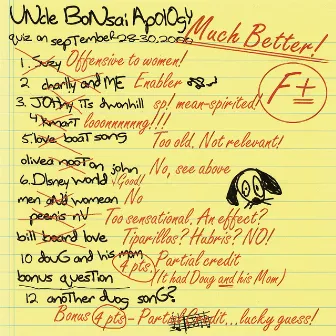 UNcle BoNsai ApolOgy
quiz on sepTember 28-30, 2000
Much Better!
F±
1. Suzy Offensive to women!
2 charlly and ME Enabler
3. JOhny its dwonhill sp! mean-spirited!
4 Kmart looonnnnnng!!!
5. love boat song Too old. Not relevant!
olivea nooton john No, see above
6. DIsney world √Good!
men and womean No
peenis nV Too sensational. An effect?
bill board love Tiparillos? Hubris? NO!
10 douG and his mom 4 pts. Partial credit
bonus question (It had Doug and his Mom)
12 another duog sonGs
Bonus 4 pts - Partial Credit...lucky guess!